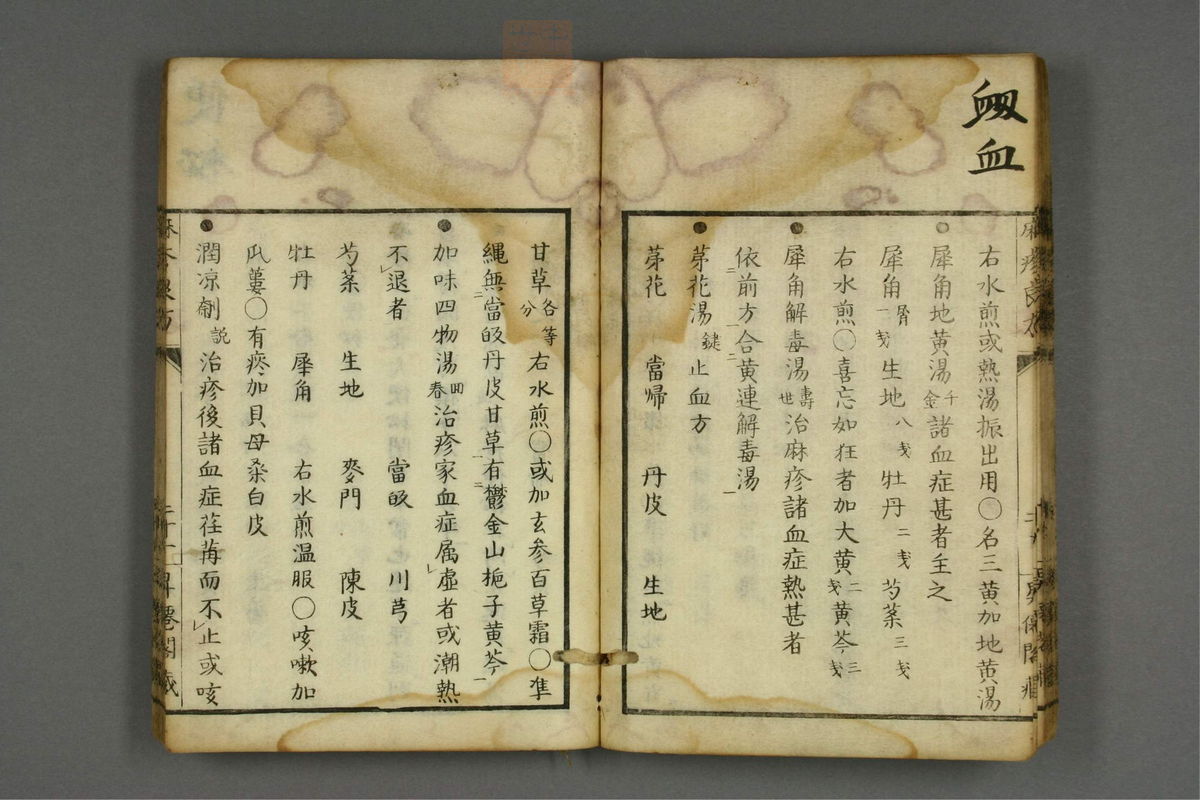 衂血
右水煎或熱湯振出用〇名三黄加地黄湯
●犀角地黄湯 千金 諸血症甚者主之
犀角 屑一戔 生地 八戔 牡丹 二戔 芍薬 三戔
右水煎〇喜忘如狂者加大黄 二戔 黄芩 三戔
●犀角解毒湯 壽世 治麻疹諸血症熱甚者
依前方合黄連解毒湯
●茅花湯 鍵 止血方
茅花 當帰 丹皮 生地
甘草 各等分 右水煎〇或加玄参百草霜〇準
縄無當皈丹皮甘草有鬱金山梔子黄芩
●加味四物湯 回春 治疹家血症属虚者或潮熱
不退者 當皈 川芎
芍薬 生地 麥門 陳皮
牡丹 犀角 右水煎温服〇咳嗽加
瓜蔞〇有痰加貝母桑白皮
●潤凉剤 説 治疹後諸血症荏苒而不止或咳